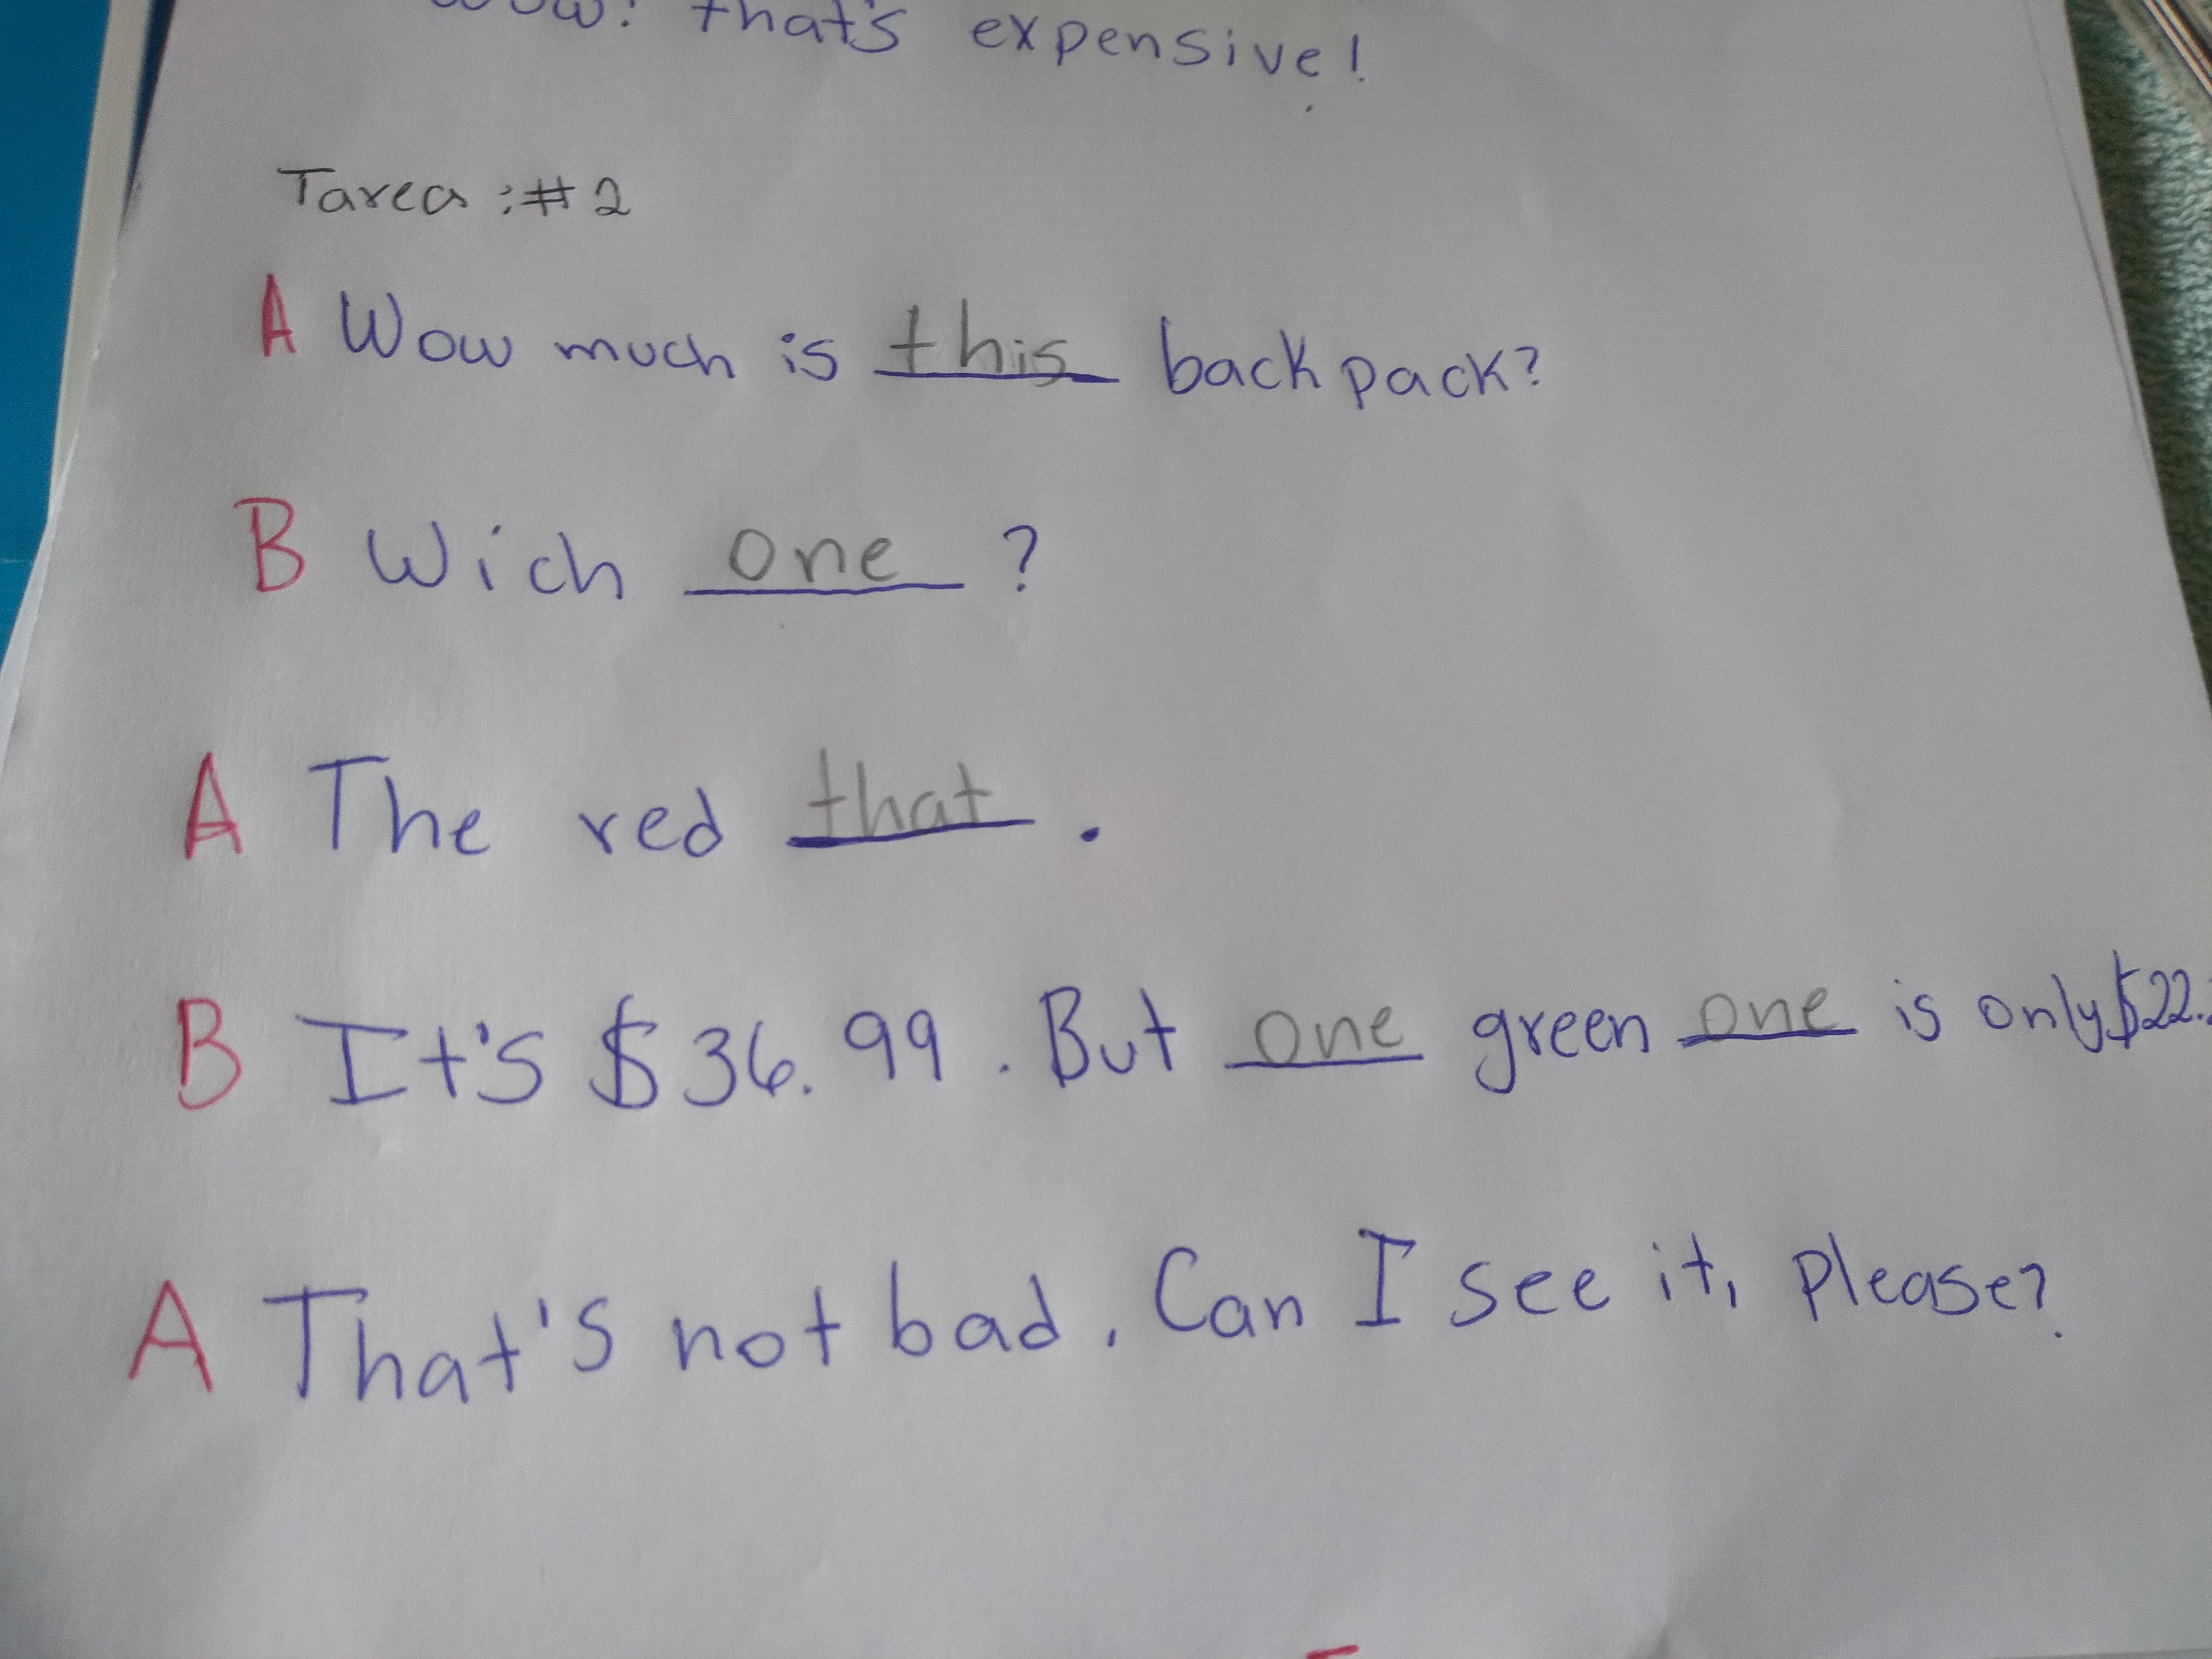 Wow! that's expensive!
Tarea :#2
A Wow much is this back pack?
B Wich one ?
A The red that .
B It's $36.99. But one green one is only $22.
A That's not bad. Can I see it, please?